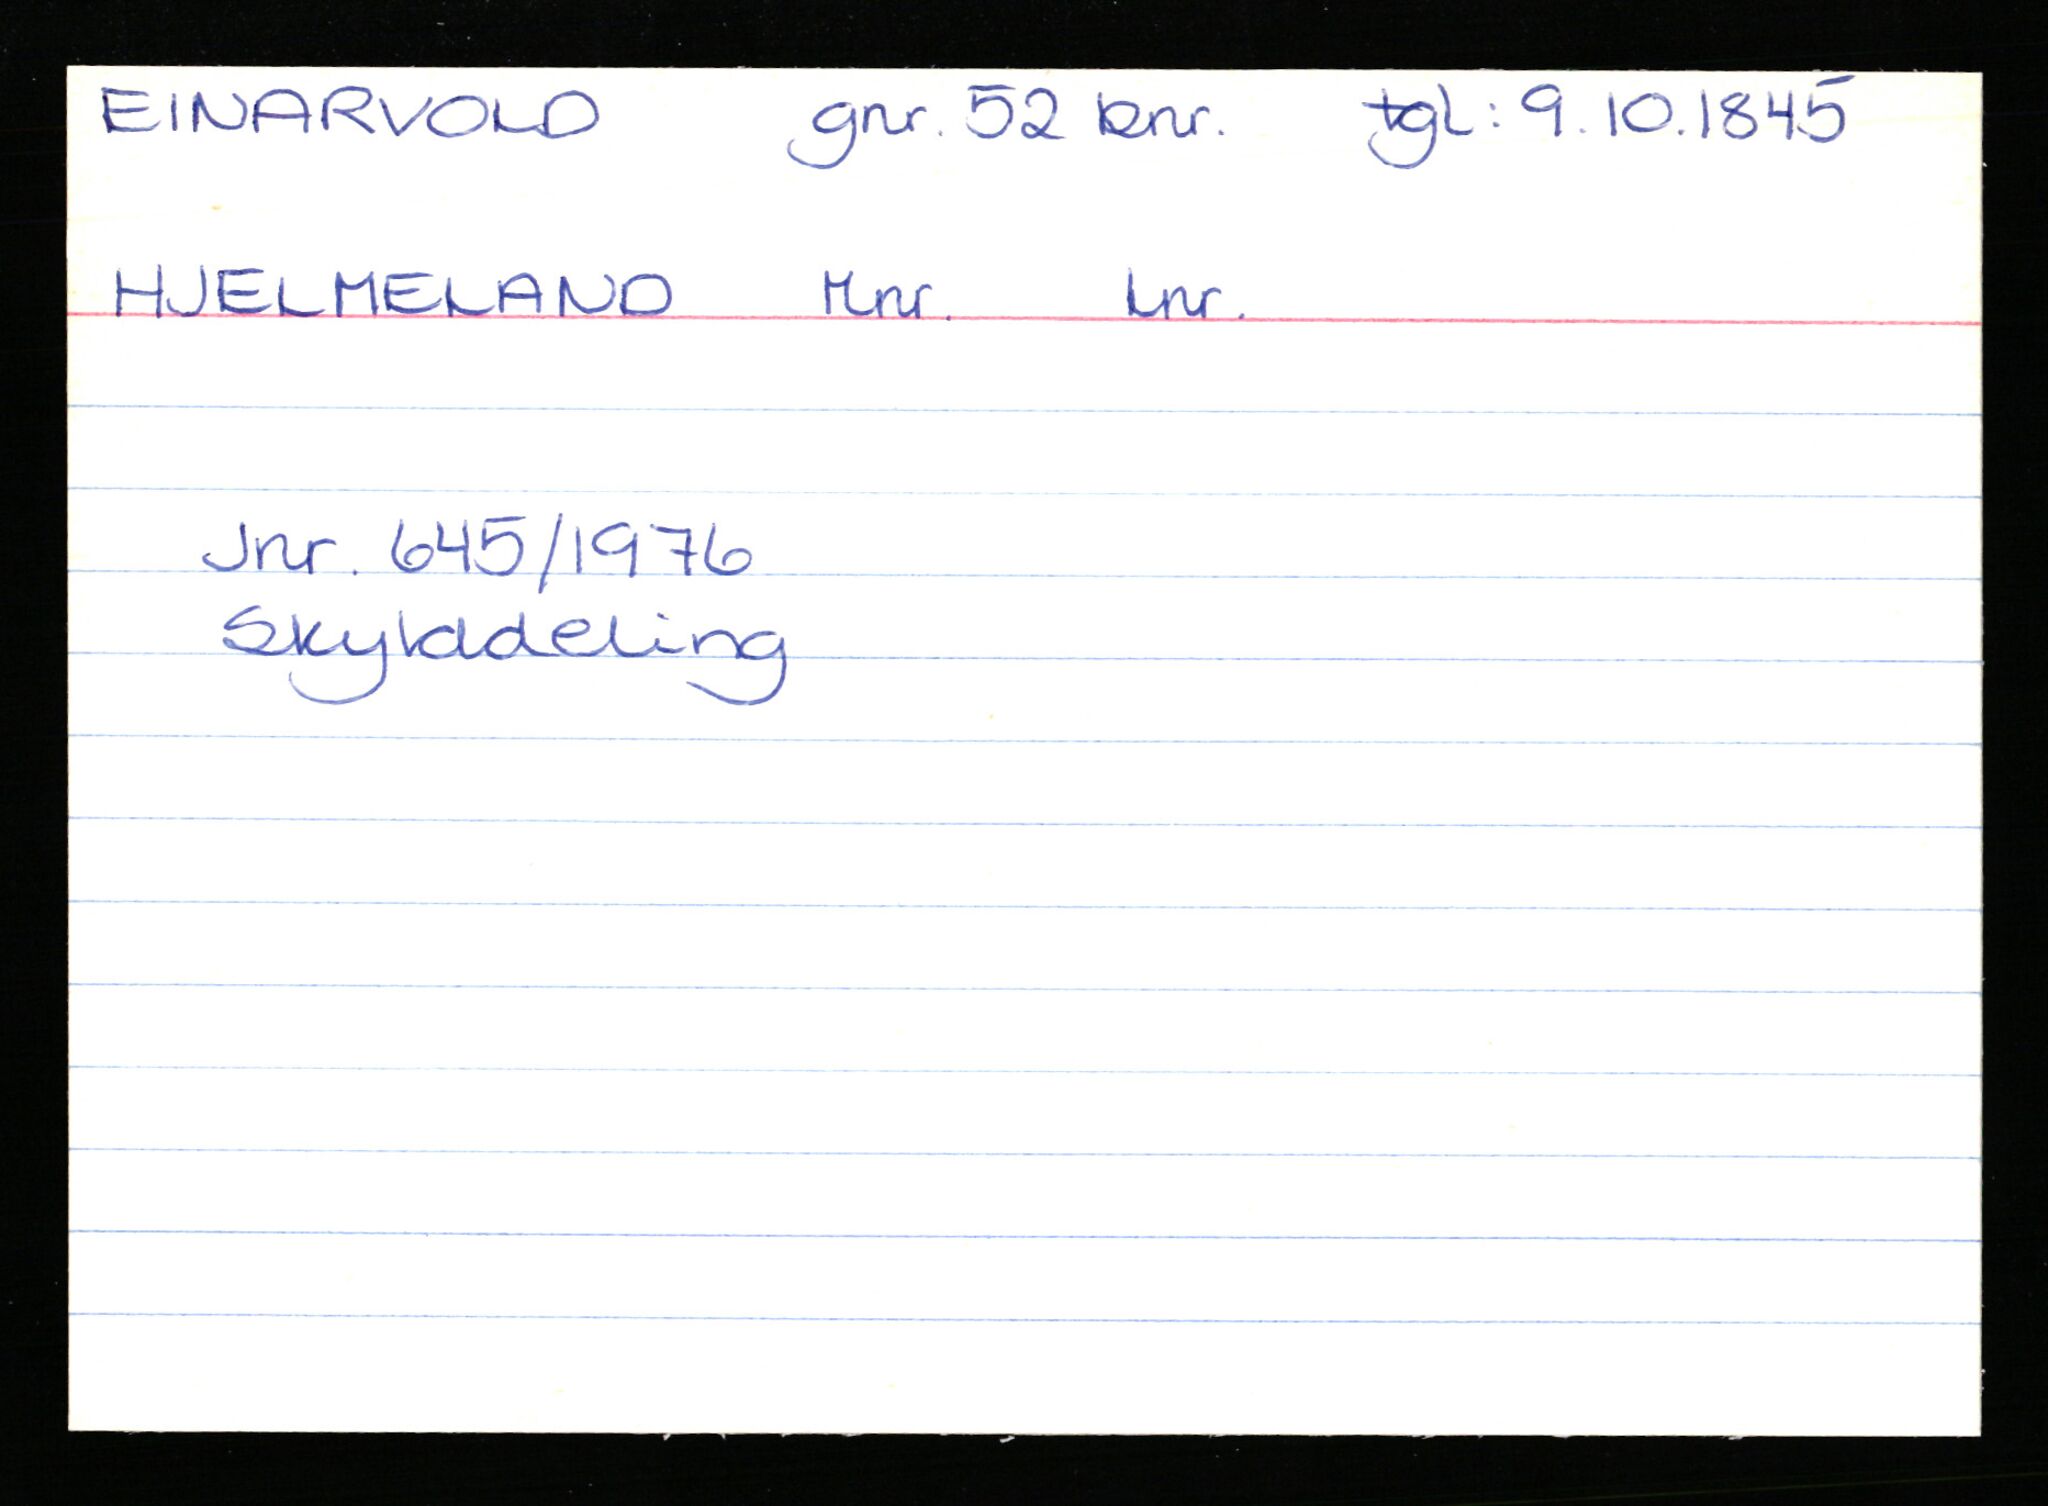 EINARVOLD gnr. 52 bnr. tgl: 9.10.1845
HJELMELAND Mnr. Lnr.
Jnr. 645/1976
Skylddeling